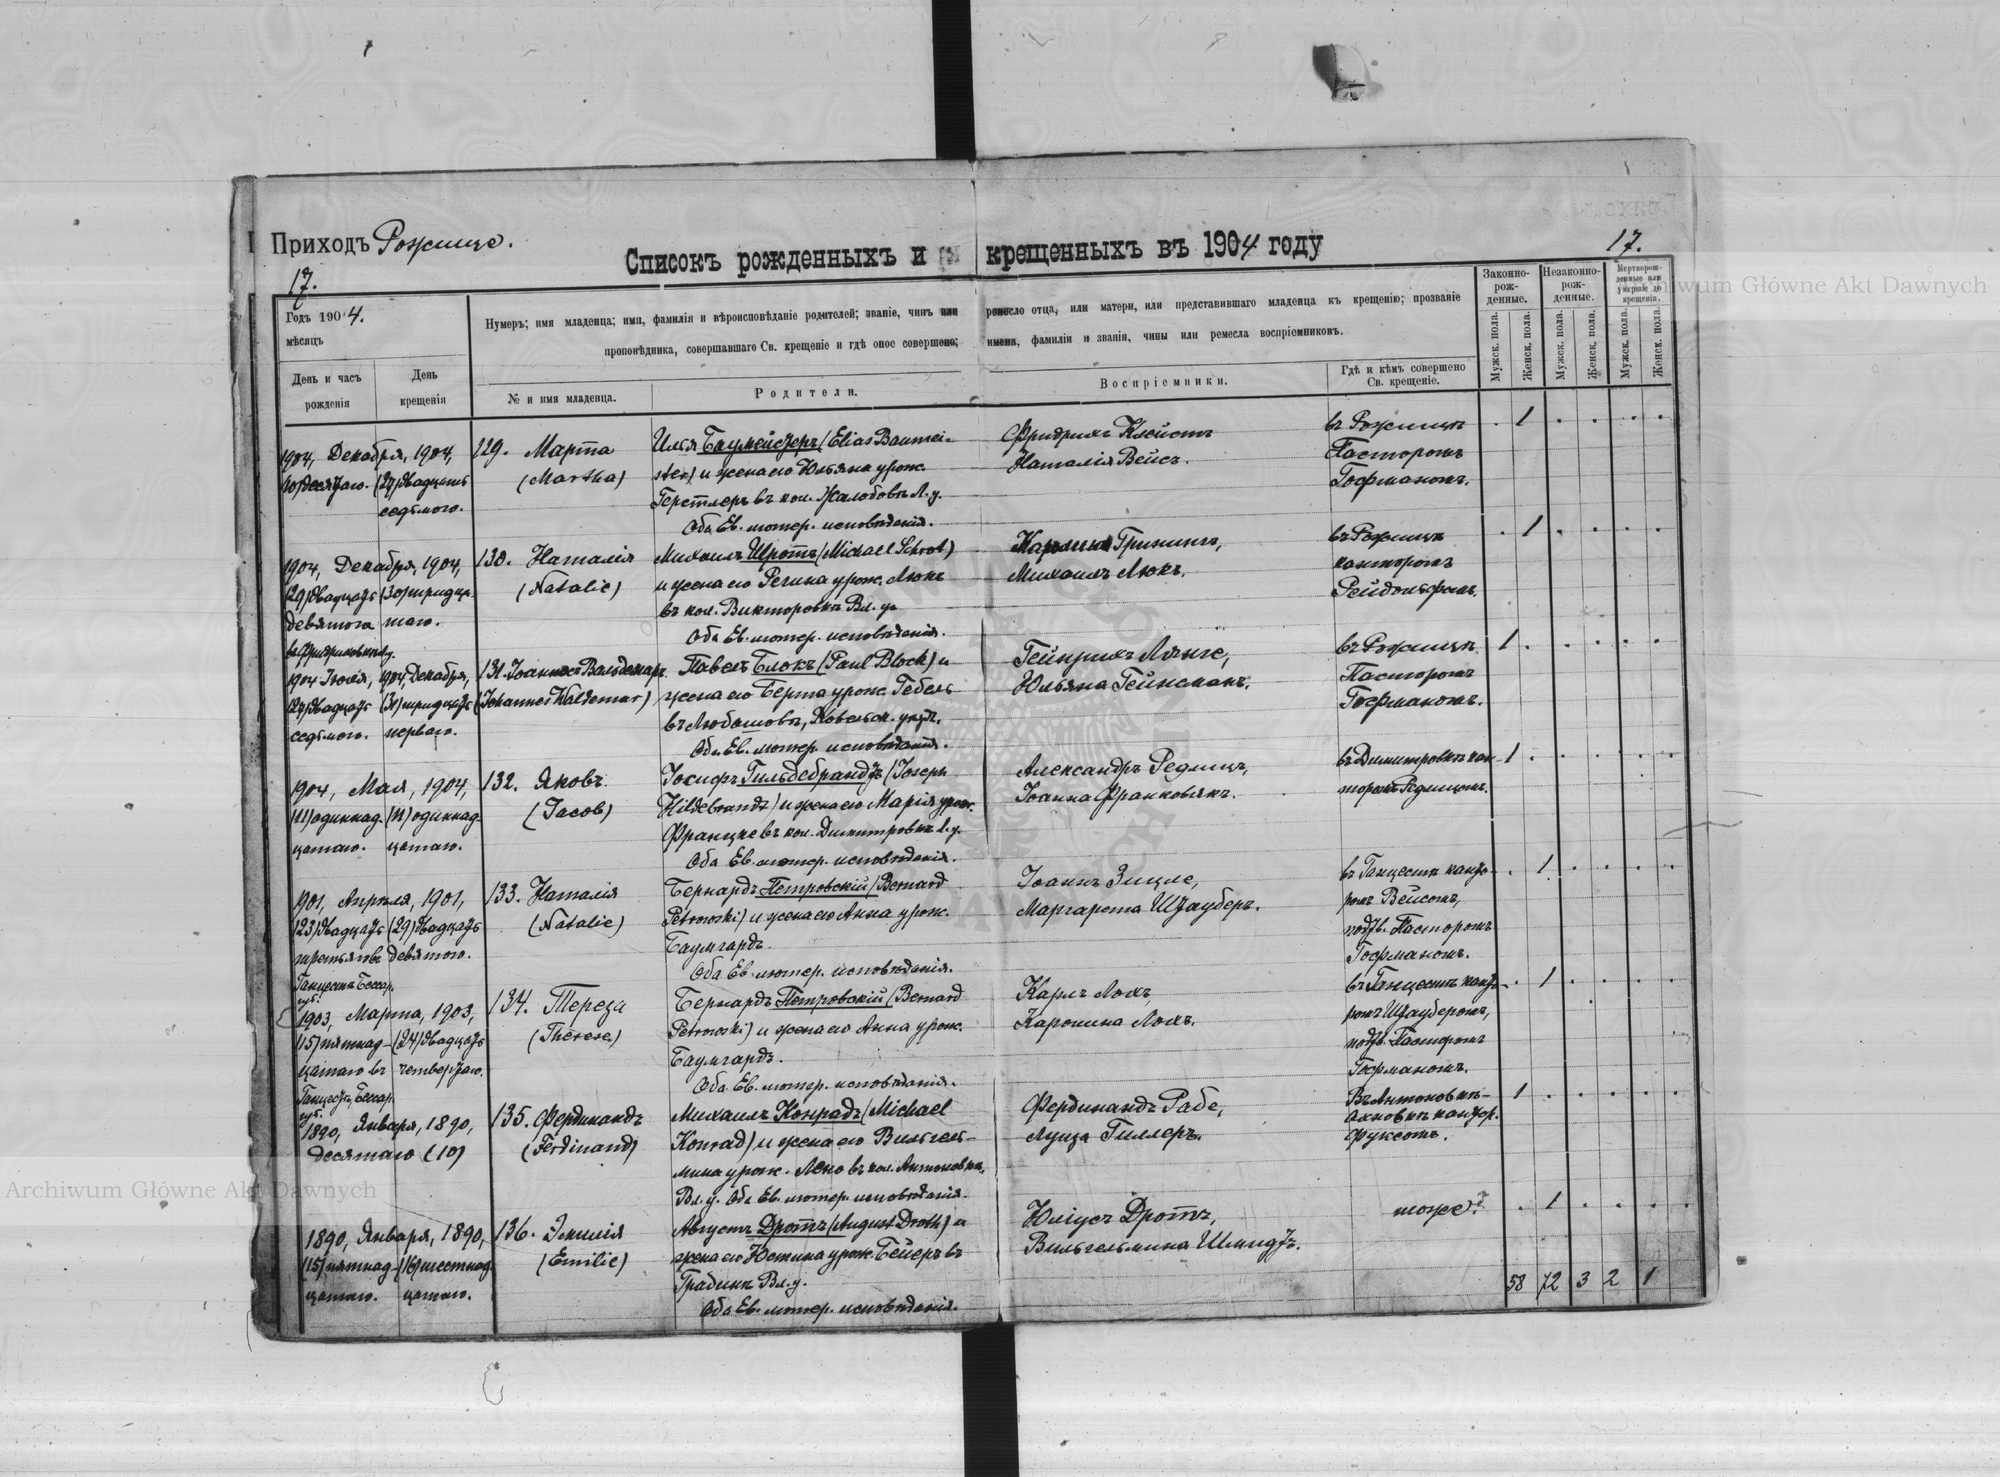 Приходъ Рожище.
Списокъ рожденныхъ и крещенныхъ въ 1904 году
17.
17.
Годъ 1904.
мѣсяцъ
День и часъ рожденія
День крещенія
Нумеръ; имя младенца; имя, фамилія и вѣроисповѣданіе родителей; званіе, чинъ или ремесло отца, или матери, или представившаго младенца къ крещенію; прозваніе
проповѣдника, совершавшаго Св. крещеніе и гдѣ оное совершено; имена, фамиліи и званія, чины или ремесла воспріемниковъ.
№ и имя младенца.
Родители.
Воспріемники.
Гдѣ и кѣмъ совершено Св. крещеніе.
Законно-рож-денные.
Незаконно-рож-денные.
Мертворож-денные или умершіе до крещенія.
Мужск. пола.
Женск. пола.
Мужск. пола.
Женск. пола.
Мужск. пола.
Женск. пола.
1904, Декабря, 1904,
(10) десятаго. (27) двадцать
седьмого.
129. Марта
(Martha)
Илья Баумейстеръ (Elias Baumei-
ster) и жена его Юльяна урож.
Герстлеръ въ кол. Жалобовъ Л. у.
Оба Ев. лютер. исповѣданія.
Фридрихъ Клейстъ
Наталія Вейсъ.
въ Рожищѣ
Пасторомъ
Гофманомъ.
1
1904, Декабря, 1904,
(29) двадцать (30) тридца-
девятого таго.
130. Наталія
(Natalie)
Михаилъ Шротъ (Michael Schrot)
и жена его Регина урож. Люкъ
въ кол. Викторовкѣ Вл. у.
Оба Ев. лютер. исповѣданія.
Михаилъ Люкъ.
въ Рожищѣ
канторомъ
1
1904 Іюля, 1904, Декабря,
(27) двадцать (31) тридцать
седьмого. перваго.
131. Іоаннесъ Вальдемаръ
(Johannes Waldemar)
Павелъ Блокъ (Paul Block) и
жена его Берта урож. Гебель
въ Любашовѣ, Ковельск. уѣзд.
Оба Ев. лютер. исповѣданія.
Гейнрихъ Лянге,
Юльяна Гейнеманъ.
въ Рожищѣ
Пасторомъ
Гофманомъ.
1
1904, Мая, 1904,
(11) одиннад- (11) одиннад-
цатаго. цатаго.
132. Яковъ
(Jacob)
Іосифъ Гильдебрандтъ (Joseph
Hildebrandt) и жена его Марія урож.
Францке въ кол. Димитровкѣ Л. у.
Оба Ев. лютер. исповѣданія.
Александръ Редлихъ,
Іоанна Франковякъ.
въ Димитровкѣ кан-
торомъ Редлихомъ.
1
1901, Апрѣля, 1901,
(23) двадцать (29) двадцать
третьяго въ девятого.
Ганцестъ Бессар.
губ.
133. Наталія
(Natalie)
Бернардъ Петровскій (Bernard
Petrowski) и жена его Анна урож.
Баумгардъ.
Оба Ев. лютер. исповѣданія.
Маргарета Штауберъ.
въ Ганцестѣ канто-
ромъ Вейсомъ,
подтв. Пасторомъ
Гофманомъ.
1
1903, Марта, 1903,
(15) пятнад- (24) двадцать
цатаго въ четвертаго.
Ганцестъ, Бессар.
губ.
134. Тереза
(Therese)
Бернардъ Петровскій (Bernard
Petrowski) и жена его Анна урож.
Баумгардъ.
Оба Ев. лютер. исповѣданія.
Карлъ Лохъ,
Каролина Лохъ.
въ Ганцестѣ канто-
ромъ Штауберомъ,
подтв. Пасторомъ
Гофманомъ.
1
1890, Января, 1890,
десятаго (10)
135. Фердинандъ
(Ferdinand)
Михаилъ Конрадъ (Michael
Konrad) и жена его Вильгель-
мина урож. Ленъ въ кол. Антоновка,
Вл. у. Оба Ев. лютер. исповѣданія.
Фердинандъ Рабе,
Луиза Гиллеръ.
Въ Антоновкѣ-
кантор.
Фуксомъ.
1
1890, Января, 1890,
(15) пятнад- (16) шестнад-
цатаго. цатаго.
136. Эмилія
(Emilie)
Августъ Дротъ (August Droth) и
жена его Юстина урож. Бейеръ въ
Градикѣ Вл. у.
Оба Ев. лютер. исповѣданія.
Юліусъ Дротъ,
Вильгельмина Шмидтъ.
тоже.
1
58 72 3 2 1
Archiwum Główne Akt Dawnych
Archiwum Główne Akt Dawnych